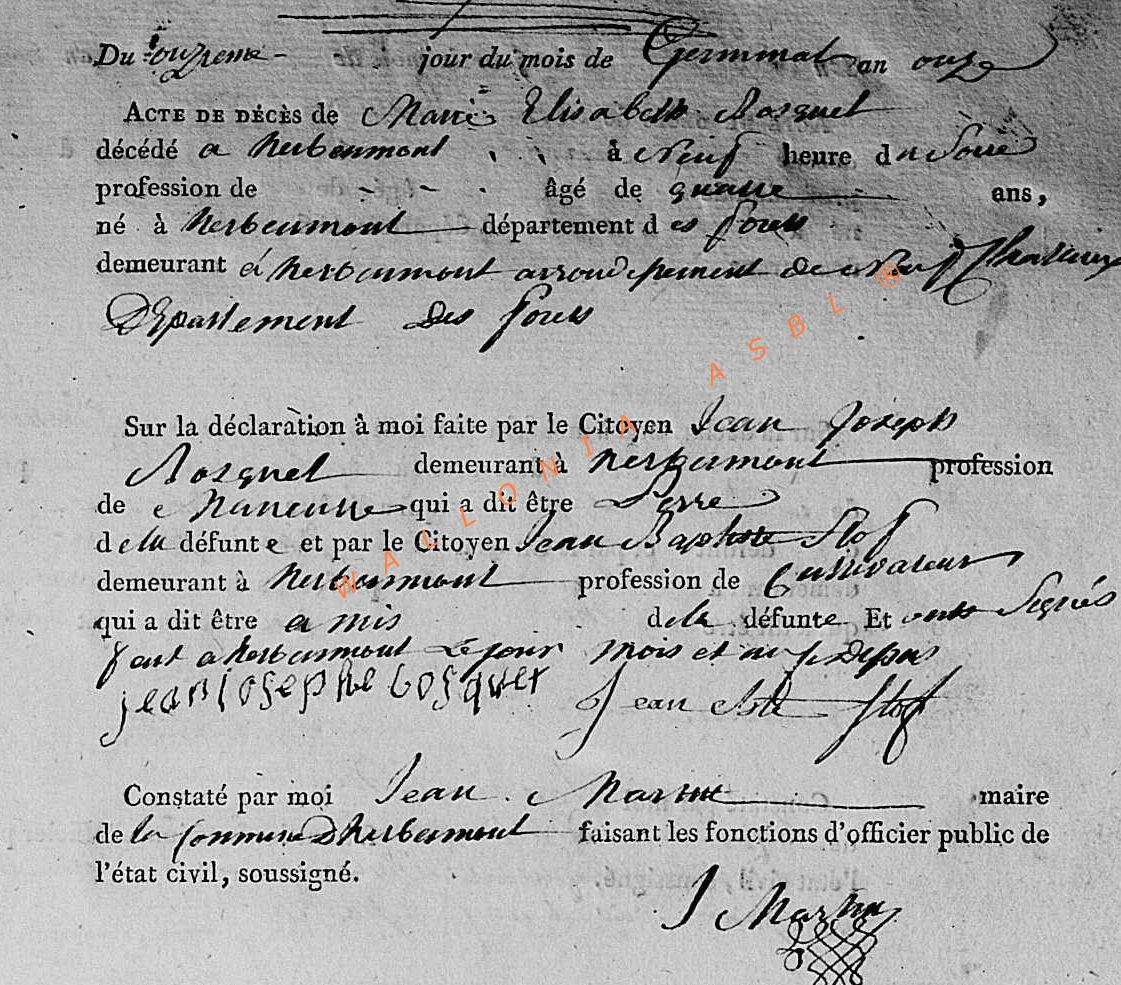 Du onzieme jour du mois de Germinal an onze
ACTE DE DÉCÈS de Marie Elisabeth Bosquet
décédé a herbeumont à Neuf heure du Soire
profession de âgé de quatre ans,
né à herbeumont département des forets
demeurant á herbeumont arrondissement de Neuf Chateaux
Département des forets
Sur la déclaration à moi faite par le Citoyen Jean Joseph
Bosquet demeurant à herbeumont profession
de qui a dit être Perre
de la défunte et par le Citoyen Jean Baptiste Slof
demeurant à herbeumont profession de Cultivateur
qui a dit être amis de la défunte Et ont Signés
fait a herbeumont Le jour mois et an
jean josephe bosquet Jean Bte Slof
Constaté par moi Jean Martin maire
de la Commune Dherbeumont faisant les fonctions d'officier public de
l'état civil, soussigné.
J Martin
WALLONIA ASBL ®